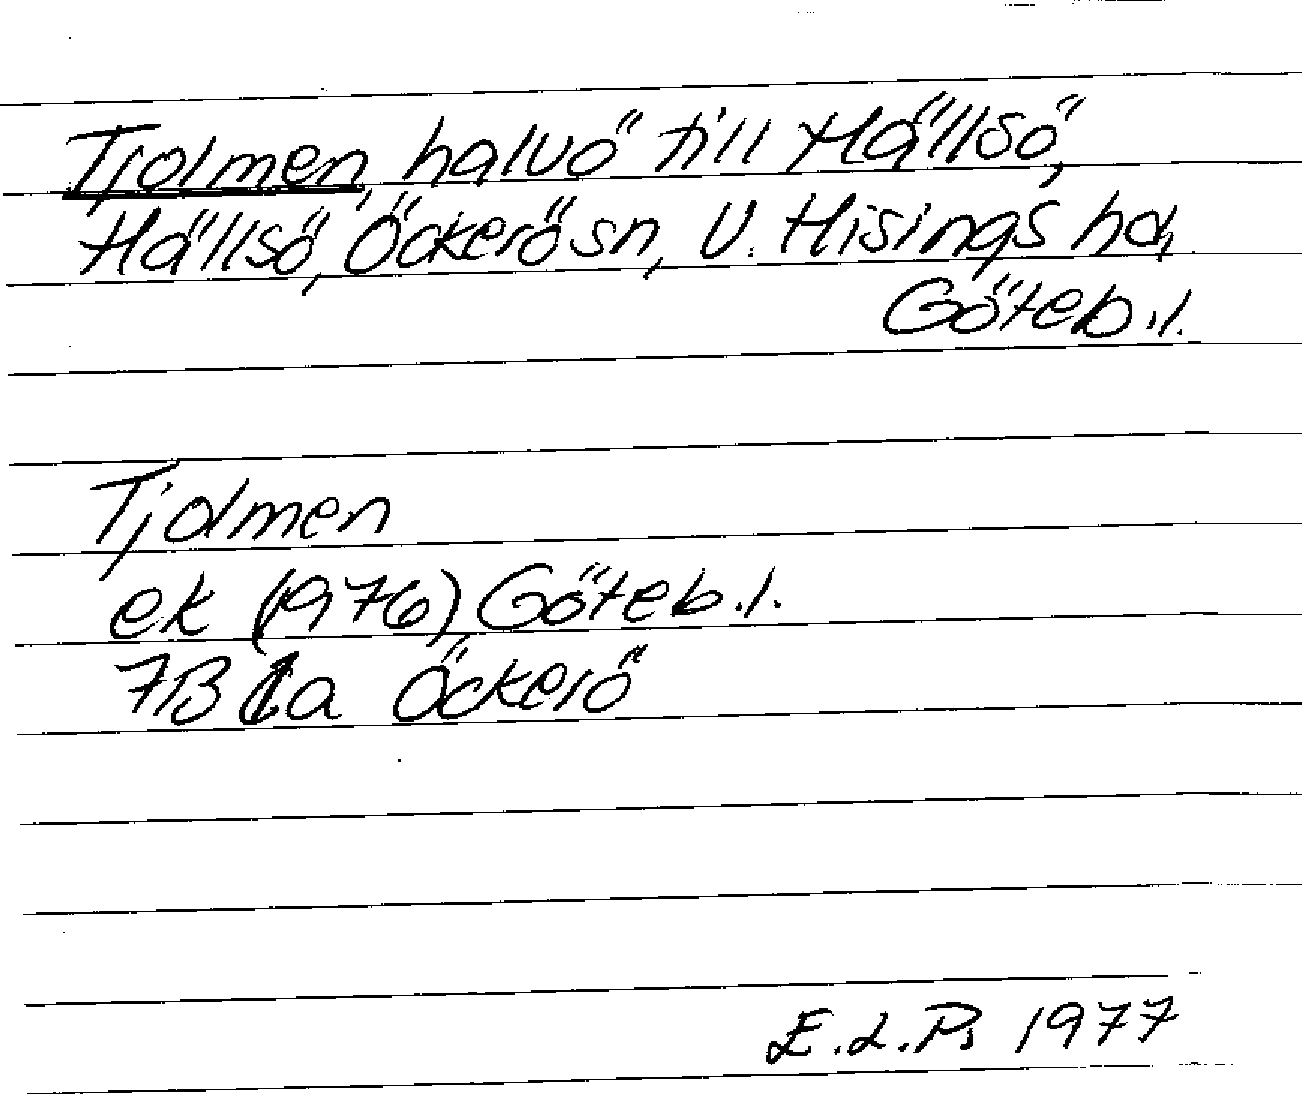 Tjolmen, halvö till Hällsö,
Hällsö, Öckerö sn, V. Hisings hd,
Göteb. l.
Tjolmen
ek (1976), Göteb. l.
7B 1a Öckerö
E.L.P. 1977